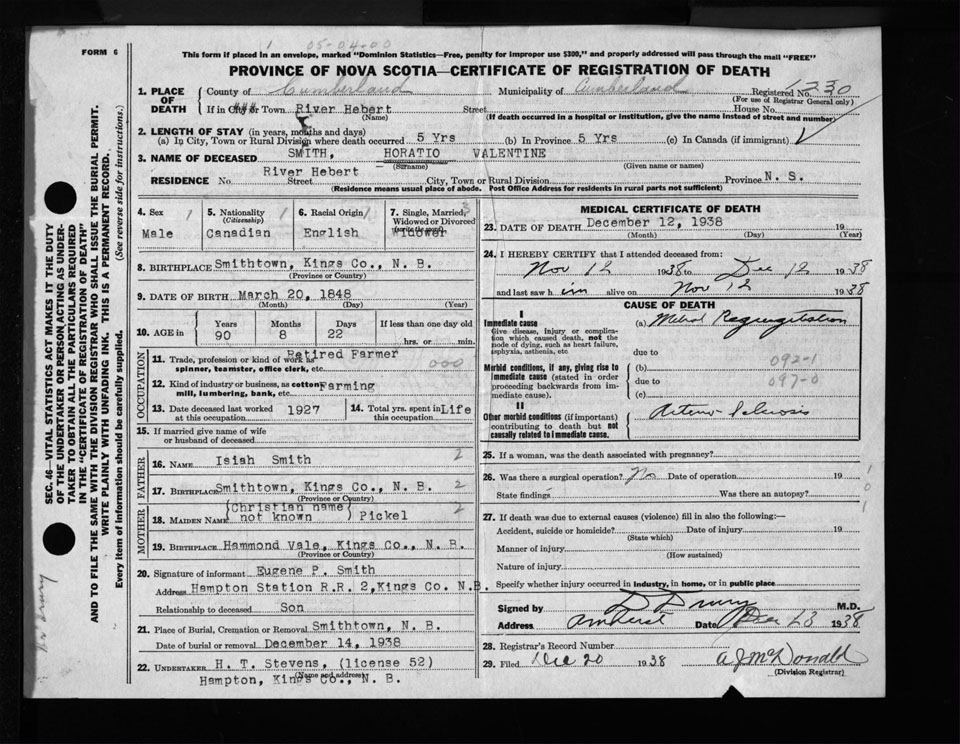 FORM 6
1 05-04-00
This form if placed in an envelope, marked "Dominion Statistics—Free, penalty for improper use $300," and properly addressed will pass through the mail "FREE"
PROVINCE OF NOVA SCOTIA—CERTIFICATE OF REGISTRATION OF DEATH
1. PLACE OF DEATH County of Cumberland Municipality of Cumberland Registered No. 1230
(For use of Registrar General only)
If in City or Town River Hebert Street House No.
(Name) (If death occurred in a hospital or institution, give the name instead of street and number)
2. LENGTH OF STAY (in years, months and days)
(a) In City, Town or Rural Division where death occurred 5 Yrs (b) In Province 5 Yrs (c) In Canada (if immigrant)
3. NAME OF DECEASED SMITH, HORATIO VALENTINE
(Surname) (Given name or names)
RESIDENCE No. River Hebert Street City, Town or Rural Division Province N. S.
(Residence means usual place of abode. Post Office Address for residents in rural parts not sufficient)
4. Sex 1 Male
5. Nationality 1 (Citizenship) Canadian
6. Racial Origin 1 English
7. Single, Married, 3 Widowed or Divorced (write the word) Widower
8. BIRTHPLACE Smithtown, Kings Co., N. B.
(Province or Country)
9. DATE OF BIRTH March 20, 1848
(Month) (Day) (Year)
10. AGE in Years 90 Months 8 Days 22 If less than one day old hrs. or min.
OCCUPATION
11. Trade, profession or kind of work as spinner, teamster, office clerk, etc. Retired Farmer 000
12. Kind of industry or business, as cotton mill, lumbering, bank, etc. Farming
13. Date deceased last worked at this occupation 1927
14. Total yrs. spent in this occupation Life
15. If married give name of wife or husband of deceased
FATHER
16. NAME Isiah Smith 2
17. BIRTHPLACE Smithtown, Kings Co., N. B. 2
(Province or Country)
MOTHER
18. MAIDEN NAME (Christian name not known) Pickel 2
19. BIRTHPLACE Hammond Vale, Kings Co., N. B.
(Province or Country)
20. Signature of informant Eugene P. Smith
Address Hampton Station R.R. 2, Kings Co. N.B.
Relationship to deceased Son
21. Place of Burial, Cremation or Removal Smithtown, N. B.
Date of burial or removal December 14, 1938
22. UNDERTAKER H. T. Stevens, (license 52)
(Name and address)
Hampton, Kings Co., N. B.
MEDICAL CERTIFICATE OF DEATH
23. DATE OF DEATH December 12, 1938 19
(Month) (Day) (Year)
24. I HEREBY CERTIFY that I attended deceased from:
Nov 12 1938 to Dec 12 1938
and last saw him alive on Nov 12 1938
CAUSE OF DEATH
I
Immediate cause (a) Mitral Regurgitation
Give disease, injury or complication which caused death, not the mode of dying, such as heart failure, asphyxia, asthenia, etc
due to
Morbid conditions, if any, giving rise to immediate cause (stated in order proceeding backwards from immediate cause).
(b) 092-1
due to 097-0
(c)
II
Other morbid conditions (if important) contributing to death but not causally related to immediate cause.
Arterio Sclerosis
25. If a woman, was the death associated with pregnancy?
26. Was there a surgical operation? No Date of operation 19
State findings Was there an autopsy?
27. If death was due to external causes (violence) fill in also the following:—
Accident, suicide or homicide? Date of injury 19
(State which)
Manner of injury
(How sustained)
Nature of injury
Specify whether injury occurred in industry, in home, or in public place
Signed by D Drury M.D.
Address Amherst Date Dec 13 1938
28. Registrar's Record Number
29. Filed Dec 20 1938 A J McDonald
(Division Registrar)
SEC. 46—VITAL STATISTICS ACT MAKES IT THE DUTY
OF THE UNDERTAKER OR PERSON ACTING AS UNDER-
TAKER TO OBTAIN ALL THE PARTICULARS REQUIRED
IN THE "CERTIFICATE OF REGISTRATION OF DEATH"
AND TO FILE THE SAME WITH THE DIVISION REGISTRAR WHO SHALL ISSUE THE BURIAL PERMIT.
WRITE PLAINLY WITH UNFADING INK. THIS IS A PERMANENT RECORD.
Every item of information should be carefully supplied. (See reverse side for instructions.)
Drury